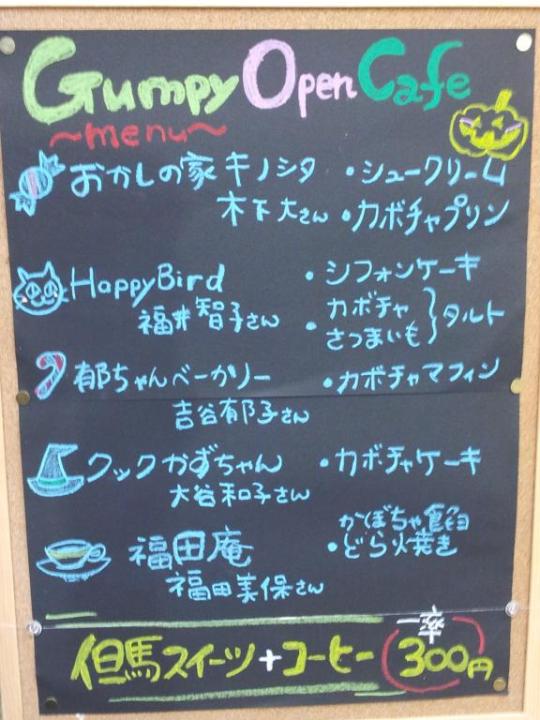 Gumpy Open Cafe
～menu～
おかしの家 キノシタ ・シュークリーム
木下大さん ・カボチャプリン
HappyBird ・シフォンケーキ
福井智子さん ・カボチャ さつまいも } タルト
郁ちゃんベーカリー ・カボチャマフィン
吉谷郁子さん
クックかずちゃん ・カボチャケーキ
大谷和子さん
福田庵 ・かぼちゃ餡 どら焼き
福田美保さん
但馬スイーツ+コーヒー 一率 300円